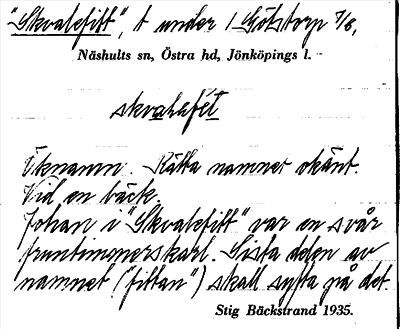 "Skvalefitt", t under 1 Götstorp 7/8,
Näshults sn, Östra hd, Jönköpings l.
skvalafét
Öknamn. Rätta namnet okänt.
Vid en bäck.
Johan i "Skvalefitt" var en svår
fruntimmerskarl. Sista delen av
namnet ("fittan") skall syfta på det.
Stig Bäckstrand 1935.